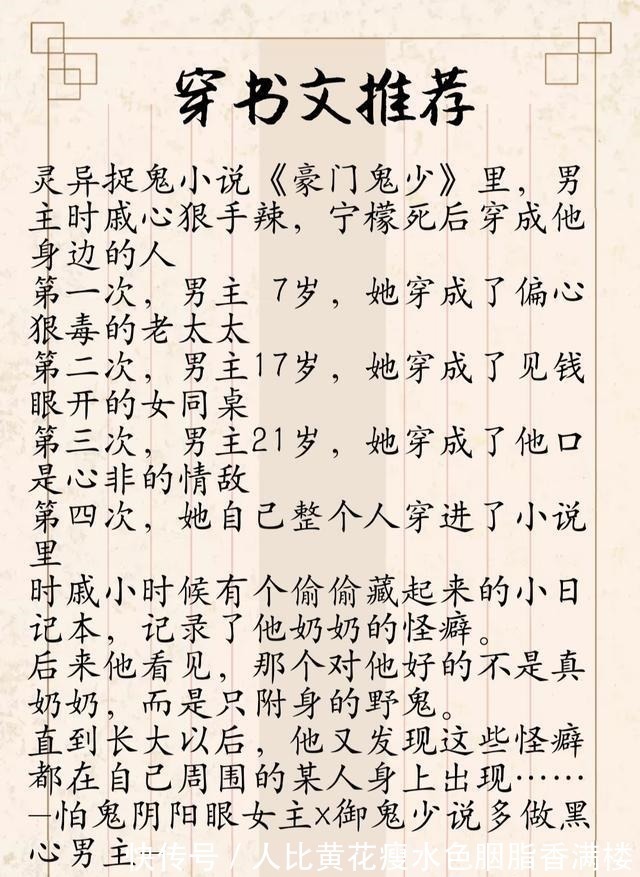 穿书文推荐
灵异捉鬼小说《豪门鬼少》里，男
主时戚心狠手辣，宁檬死后穿成他
身边的人
第一次，男主 7岁，她穿成了偏心
狠毒的老太太
第二次，男主17岁，她穿成了见钱
眼开的女同桌
第三次，男主21岁，她穿成了他口
是心非的情敌
第四次，她自己整个人穿进了小说
里
时戚小时候有个偷偷藏起来的小日
记本，记录了他奶奶的怪癖。
后来他看见，那个对他好的不是真
奶奶，而是只附身的野鬼。
直到长大以后，他又发现这些怪癖
都在自己周围的某人身上出现……
-怕鬼阴阳眼女主x御鬼少说多做黑
心男主
快传号 / 人比黄花瘦水色胭脂香满楼